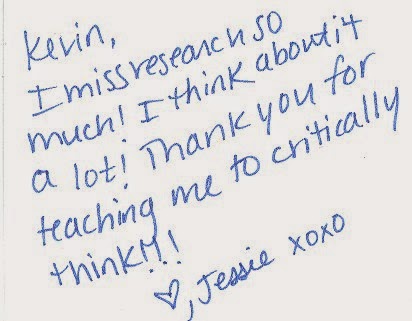 Kevin,
I miss research so
much! I think about it
a lot! Thank you for
teaching me to critically
think!!!
♡, Jessie xoxo